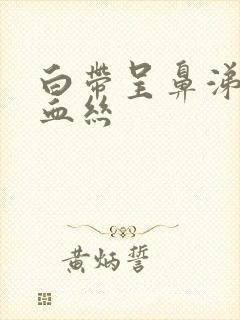 白帶呈鼻涕
血絲
黃炳誓